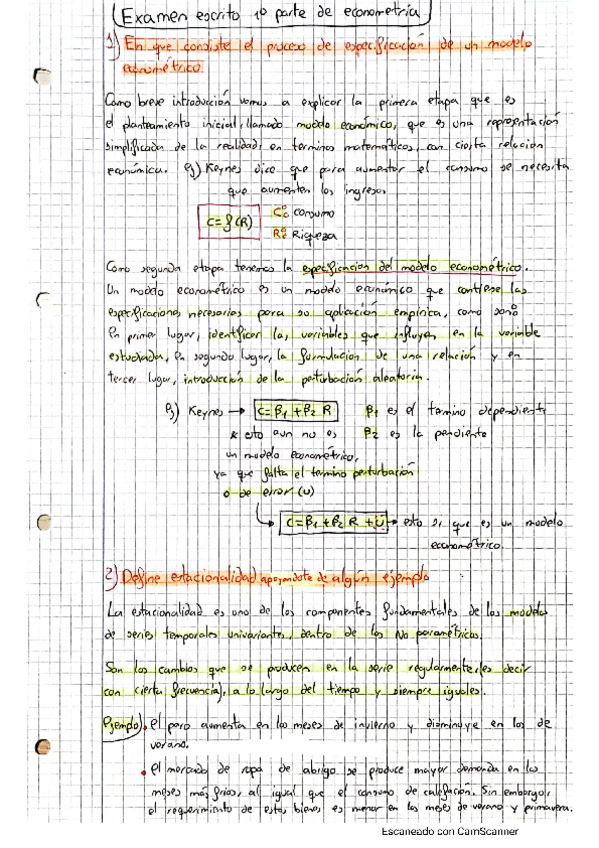 Examen escrito 1º parte de econometría
1) En que consiste el proceso de especificación de un modelo
econométrico
Como breve introducción vamos a explicar la primera etapa que es
el planteamiento inicial, llamado modelo económico, que es una representación
simplificada de la realidad, en terminos matemáticos, con cierta relación
económica. Ej) Keynes dice que para aumentar el consumo se necesita
que aumenten los ingresos
C = f(R)
C: Consumo
R: Riqueza
Como segunda etapa tenemos la especificación del modelo econométrico.
Un modelo econométrico es un modelo económico que contiene las
especificaciones necesarias para su aplicación empírica, como son:
En primer lugar, identificar las variables que influyen en la variable
estudiada, En segundo lugar, la formulación de una relación y en
tercer lugar, introducción de la perturbación aleatoria.
Ej) Keynes → C = β1 + β2 R β1 es el término dependiente
* esto aun no es β2 es la pendiente
un modelo econométrico,
ya que falta el termino perturbación
o de error (U)
C = β1 + β2 R + U → esto si que es un modelo
econométrico.
2) Define estacionalidad apoyandote de algún ejemplo
La estacionalidad es uno de los componentes fundamentales de los modelos
de series temporales univariantes, dentro de los No paramétricos.
Son los cambios que se producen en la serie regularmente (es decir
con cierta frecuencia), a lo largo del tiempo y siempre iguales.
Ejemplo) • El paro aumenta en los meses de invierno y disminuye en los de
verano.
• El mercado de ropa de abrigo se produce mayor demanda en los
meses más frios, al igual que el consumo de calefacción. Sin embargo,
el requerimiento de estos bienes es menor en los meses de verano y primavera.
Escaneado con CamScanner